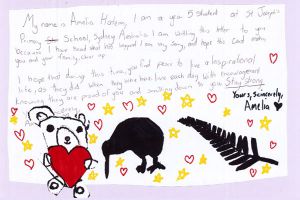 My name is Amelia I am a year 5 student at St Joseph's
Primary School, Sydney Australia. I am writing this letter to you
because I have heard what has happened. I am very sorry, and hope this card makes
you and your family cheer up.
I hope that during this time you find peace to live a inspirational
life, as they did when they were here live each day with encouragement
knowing they are proud of you and smiling down to you Stay Strong
Yours, sincerely,
Amelia